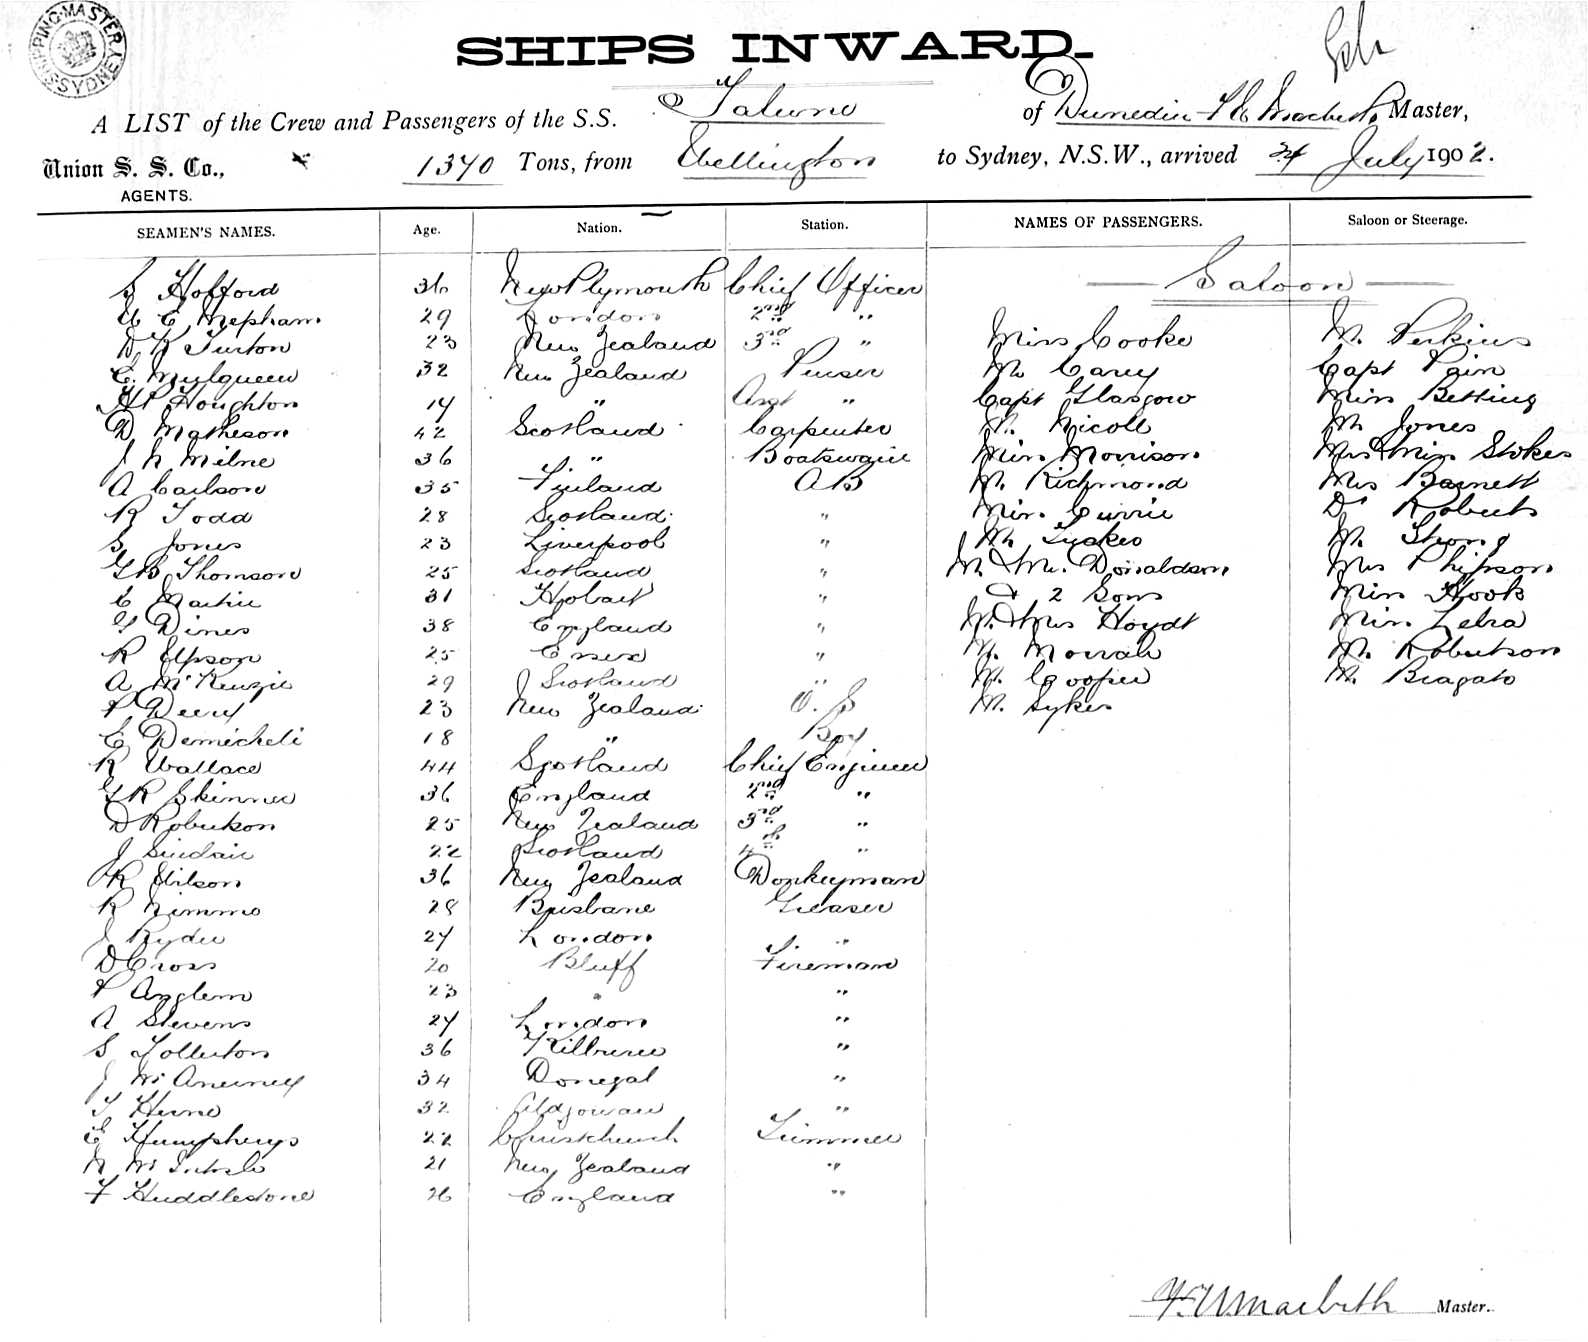 SHIPPING MASTER SYDNEY
SHIPS INWARD.
A LIST of the Crew and Passengers of the S.S. Talune of Dunedin Master,
Union S. S. Co., 1370 Tons, from Wellington to Sydney, N.S.W., arrived 24 July 1902.
AGENTS.
SEAMEN'S NAMES. Age. Nation. Station. NAMES OF PASSENGERS. Saloon or Steerage.
Saloon
S Hofford 36 New Plymouth Chief Officer
E Mepham 29 London 2nd "
D K Turton 23 New Zealand 3rd "
E. Mylqueen 32 New Zealand Purser
H Houghton 19 " Asst "
D Matheson 42 Scotland Carpenter
J N Milne 36 " Boatswain
A Carlson 35 Finland AB
R Todd 28 Scotland "
S Jones 23 Liverpool "
G B Thomson 25 Scotland "
E Martin 31 Hobart "
G Dines 38 England "
R Upson 25 Essex "
A McKenzie 29 Scotland "
P Deery 23 New Zealand O.S
E Demicheli 18 " Boy
R Wallace 44 Scotland Chief Engineer
G R Skinner 36 England 2nd "
D Robertson 25 New Zealand 3rd "
J Sinclair 22 Scotland 4th "
R Wilson 36 New Zealand Donkeyman
R Nimmo 28 Brisbane Greaser
J Ryder 27 London "
D Cross 20 Bluff Fireman
P Anglem 23 " "
A Stevens 27 London "
S Tollerton 36 "
J McAneney 34 Donegal "
T Hurne 32 "
E Humphreys 22 Christchurch Trimmer
N 21 New Zealand "
F Huddlestone 26 England "
Miss Cooke Mr Perkins
Mr Carey Capt Pain
Capt Glasgow Miss Betting
Mr Nicoll Mr Jones
Miss Morrison Mrs & Miss Stokes
Mr Richmond Mrs Barnett
Miss Currie Dr Roberts
Mr Strong
Mr & Mrs Donaldson Mrs Phipson
& 2 Sons Miss Hook
Mr & Mrs Hoydt Miss Zebra
Mr Mowah Mr Robertson
Mr Cooper Mr Bragato
Mr Sykes
Macbeth Master.